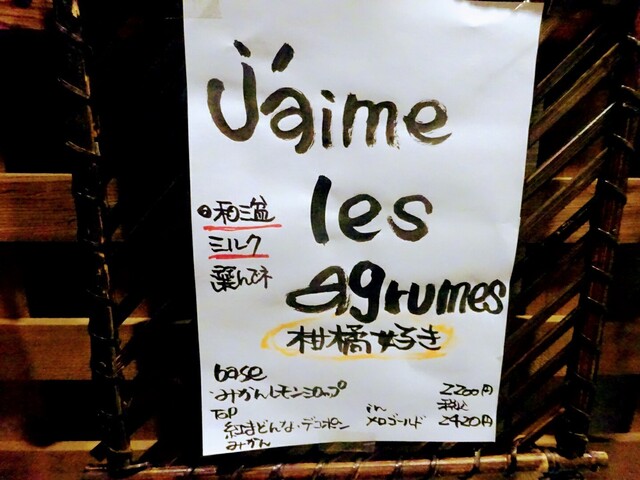 J'aime
les
agrumes
柑橘好き
和三盆
ミルク
選んでネ
base
みかんレモンシロップ 2200円
税込
2420円
TOP in
紅まどんな・デコポン メロゴールド
みかん